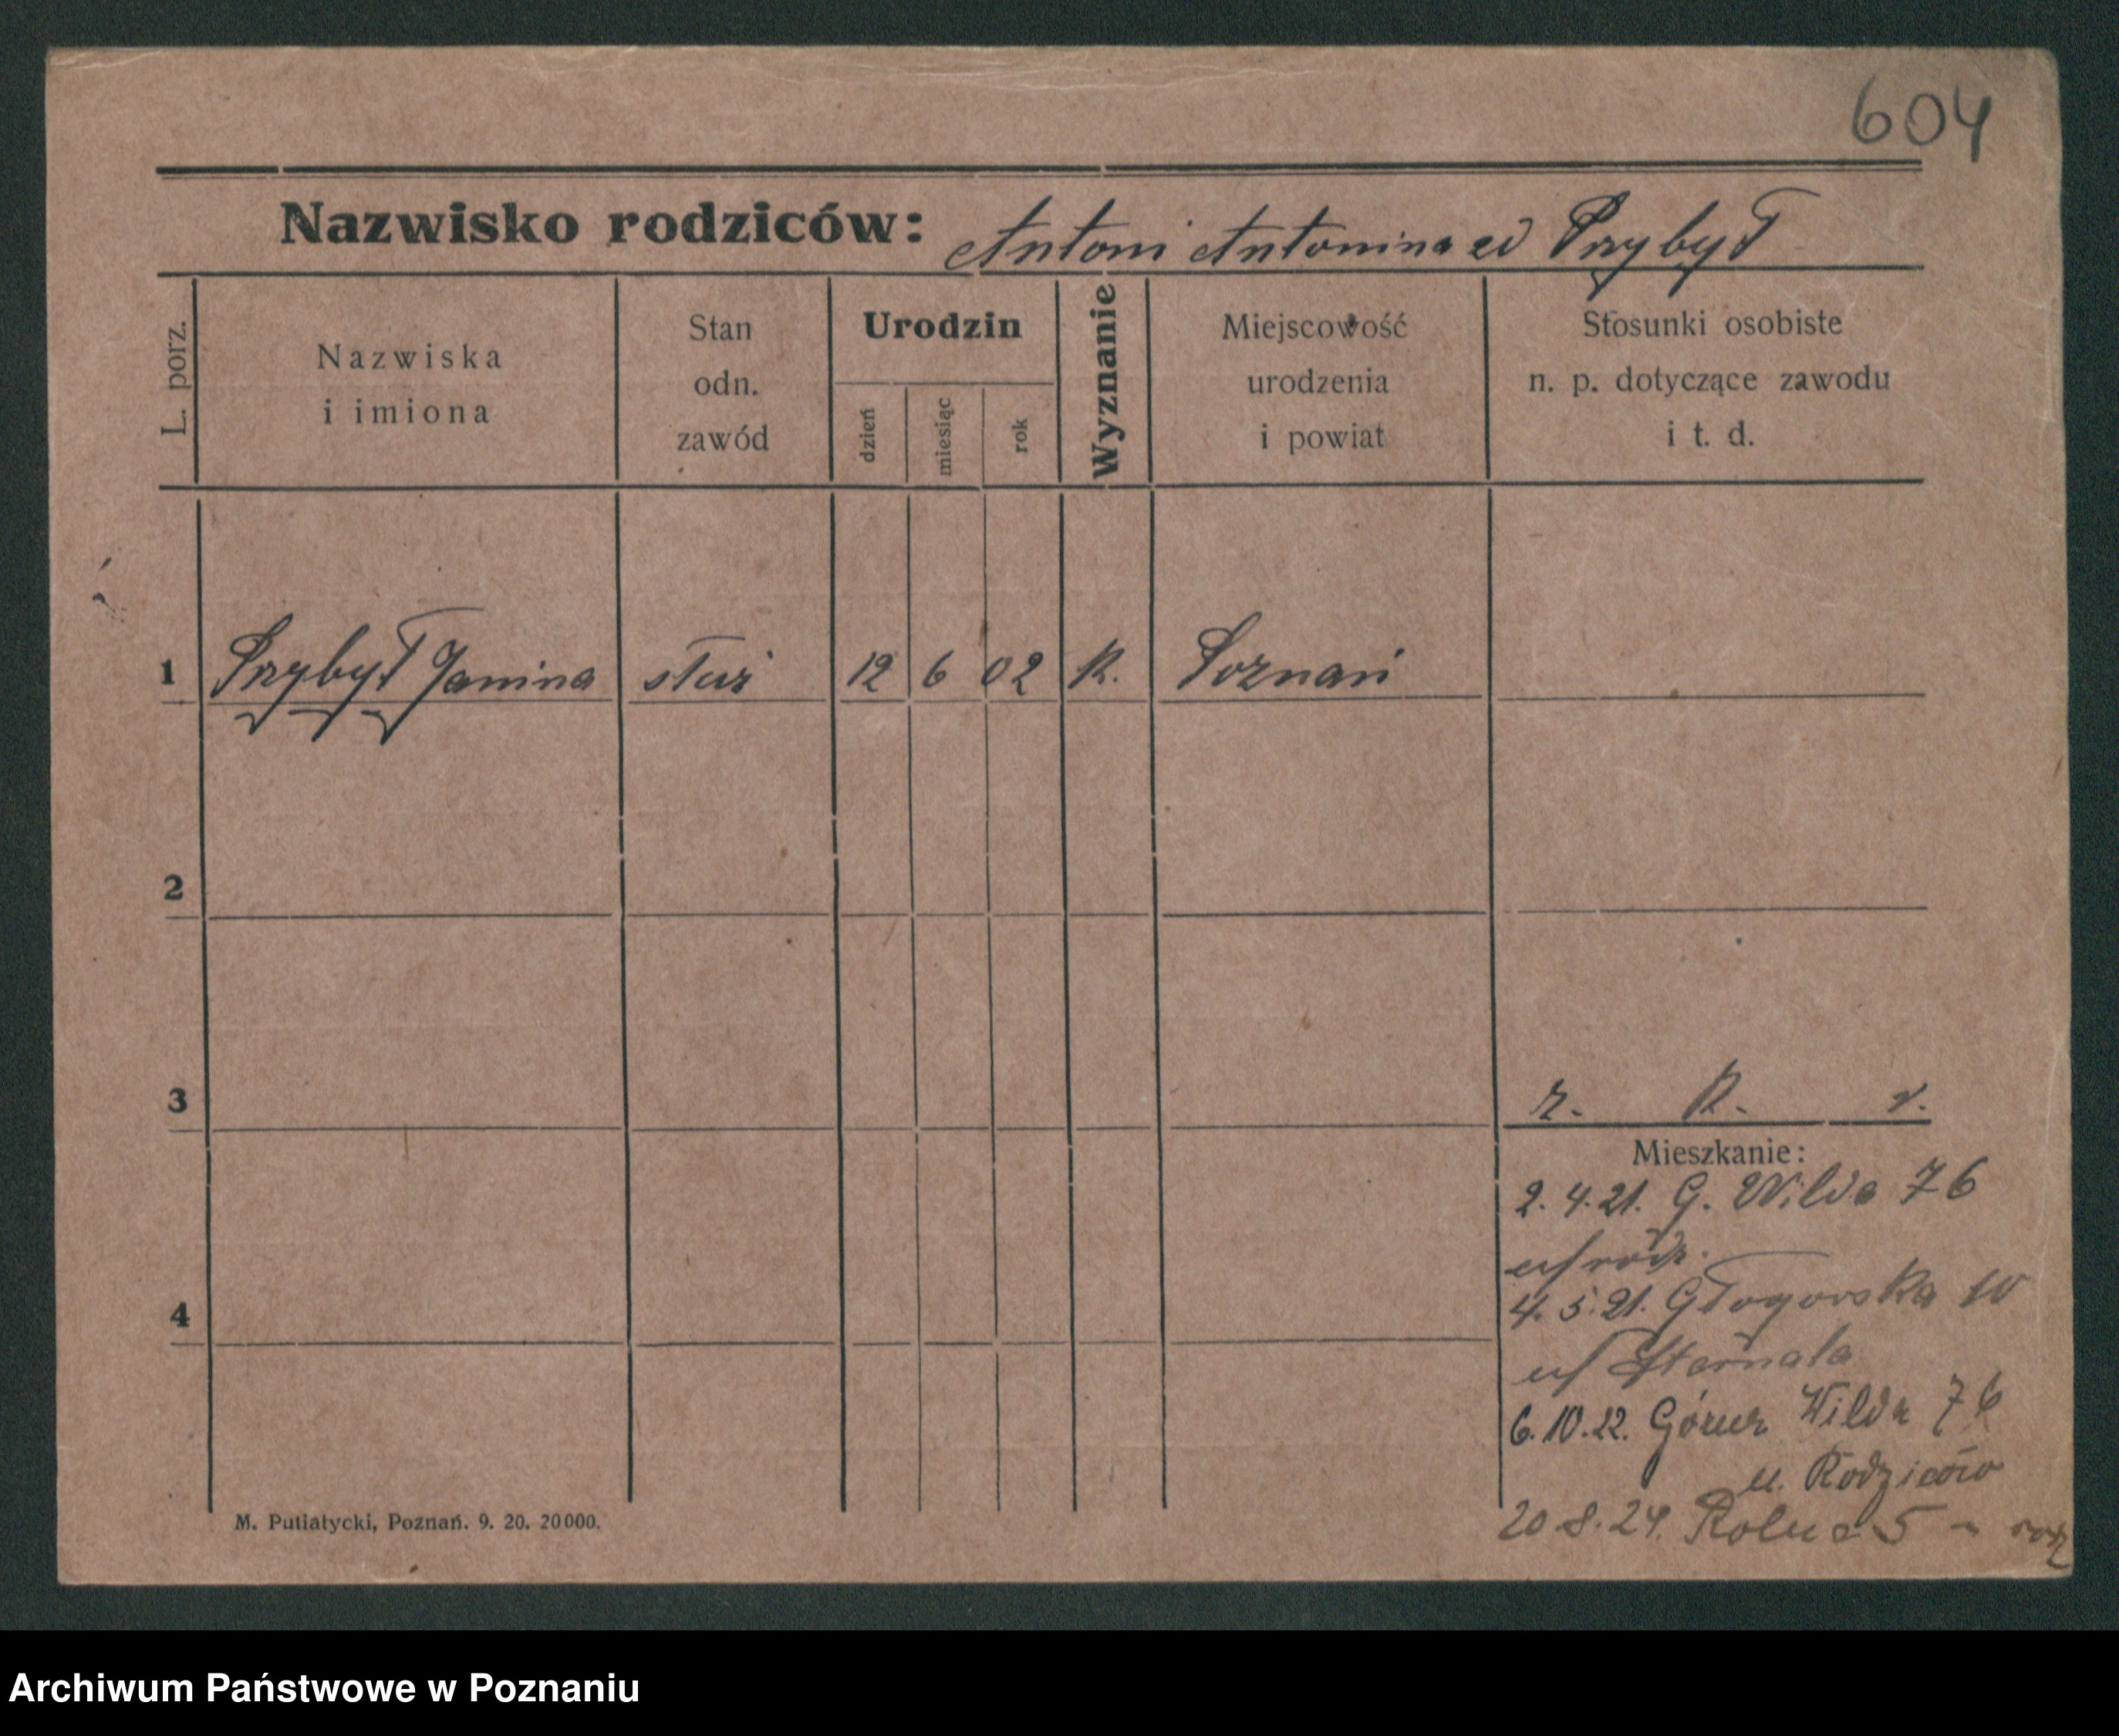 604
Nazwisko rodziców: Antoni Antonina Przybył
L. porz.
Nazwiska
i imiona
Stan
odn.
zawód
Urodzin
dzień
miesiąc
rok
Wyznanie
Miejscowość
urodzenia
i powiat
Stosunki osobiste
n. p. dotyczące zawodu
i t. d.
1 Przybył Janina służ 12 6 02 K. Poznań
2
3
K.
Mieszkanie:
2.4.21. G. Wilda 76
u/ rodz.
4.5.21. Głogowska
u/
6.10.22. Górna Wilda 76
4
u. Rodziców
20.8.24. Rolna 5 -
M. Putiatycki, Poznań. 9. 20. 20000.
Archiwum Państwowe w Poznaniu